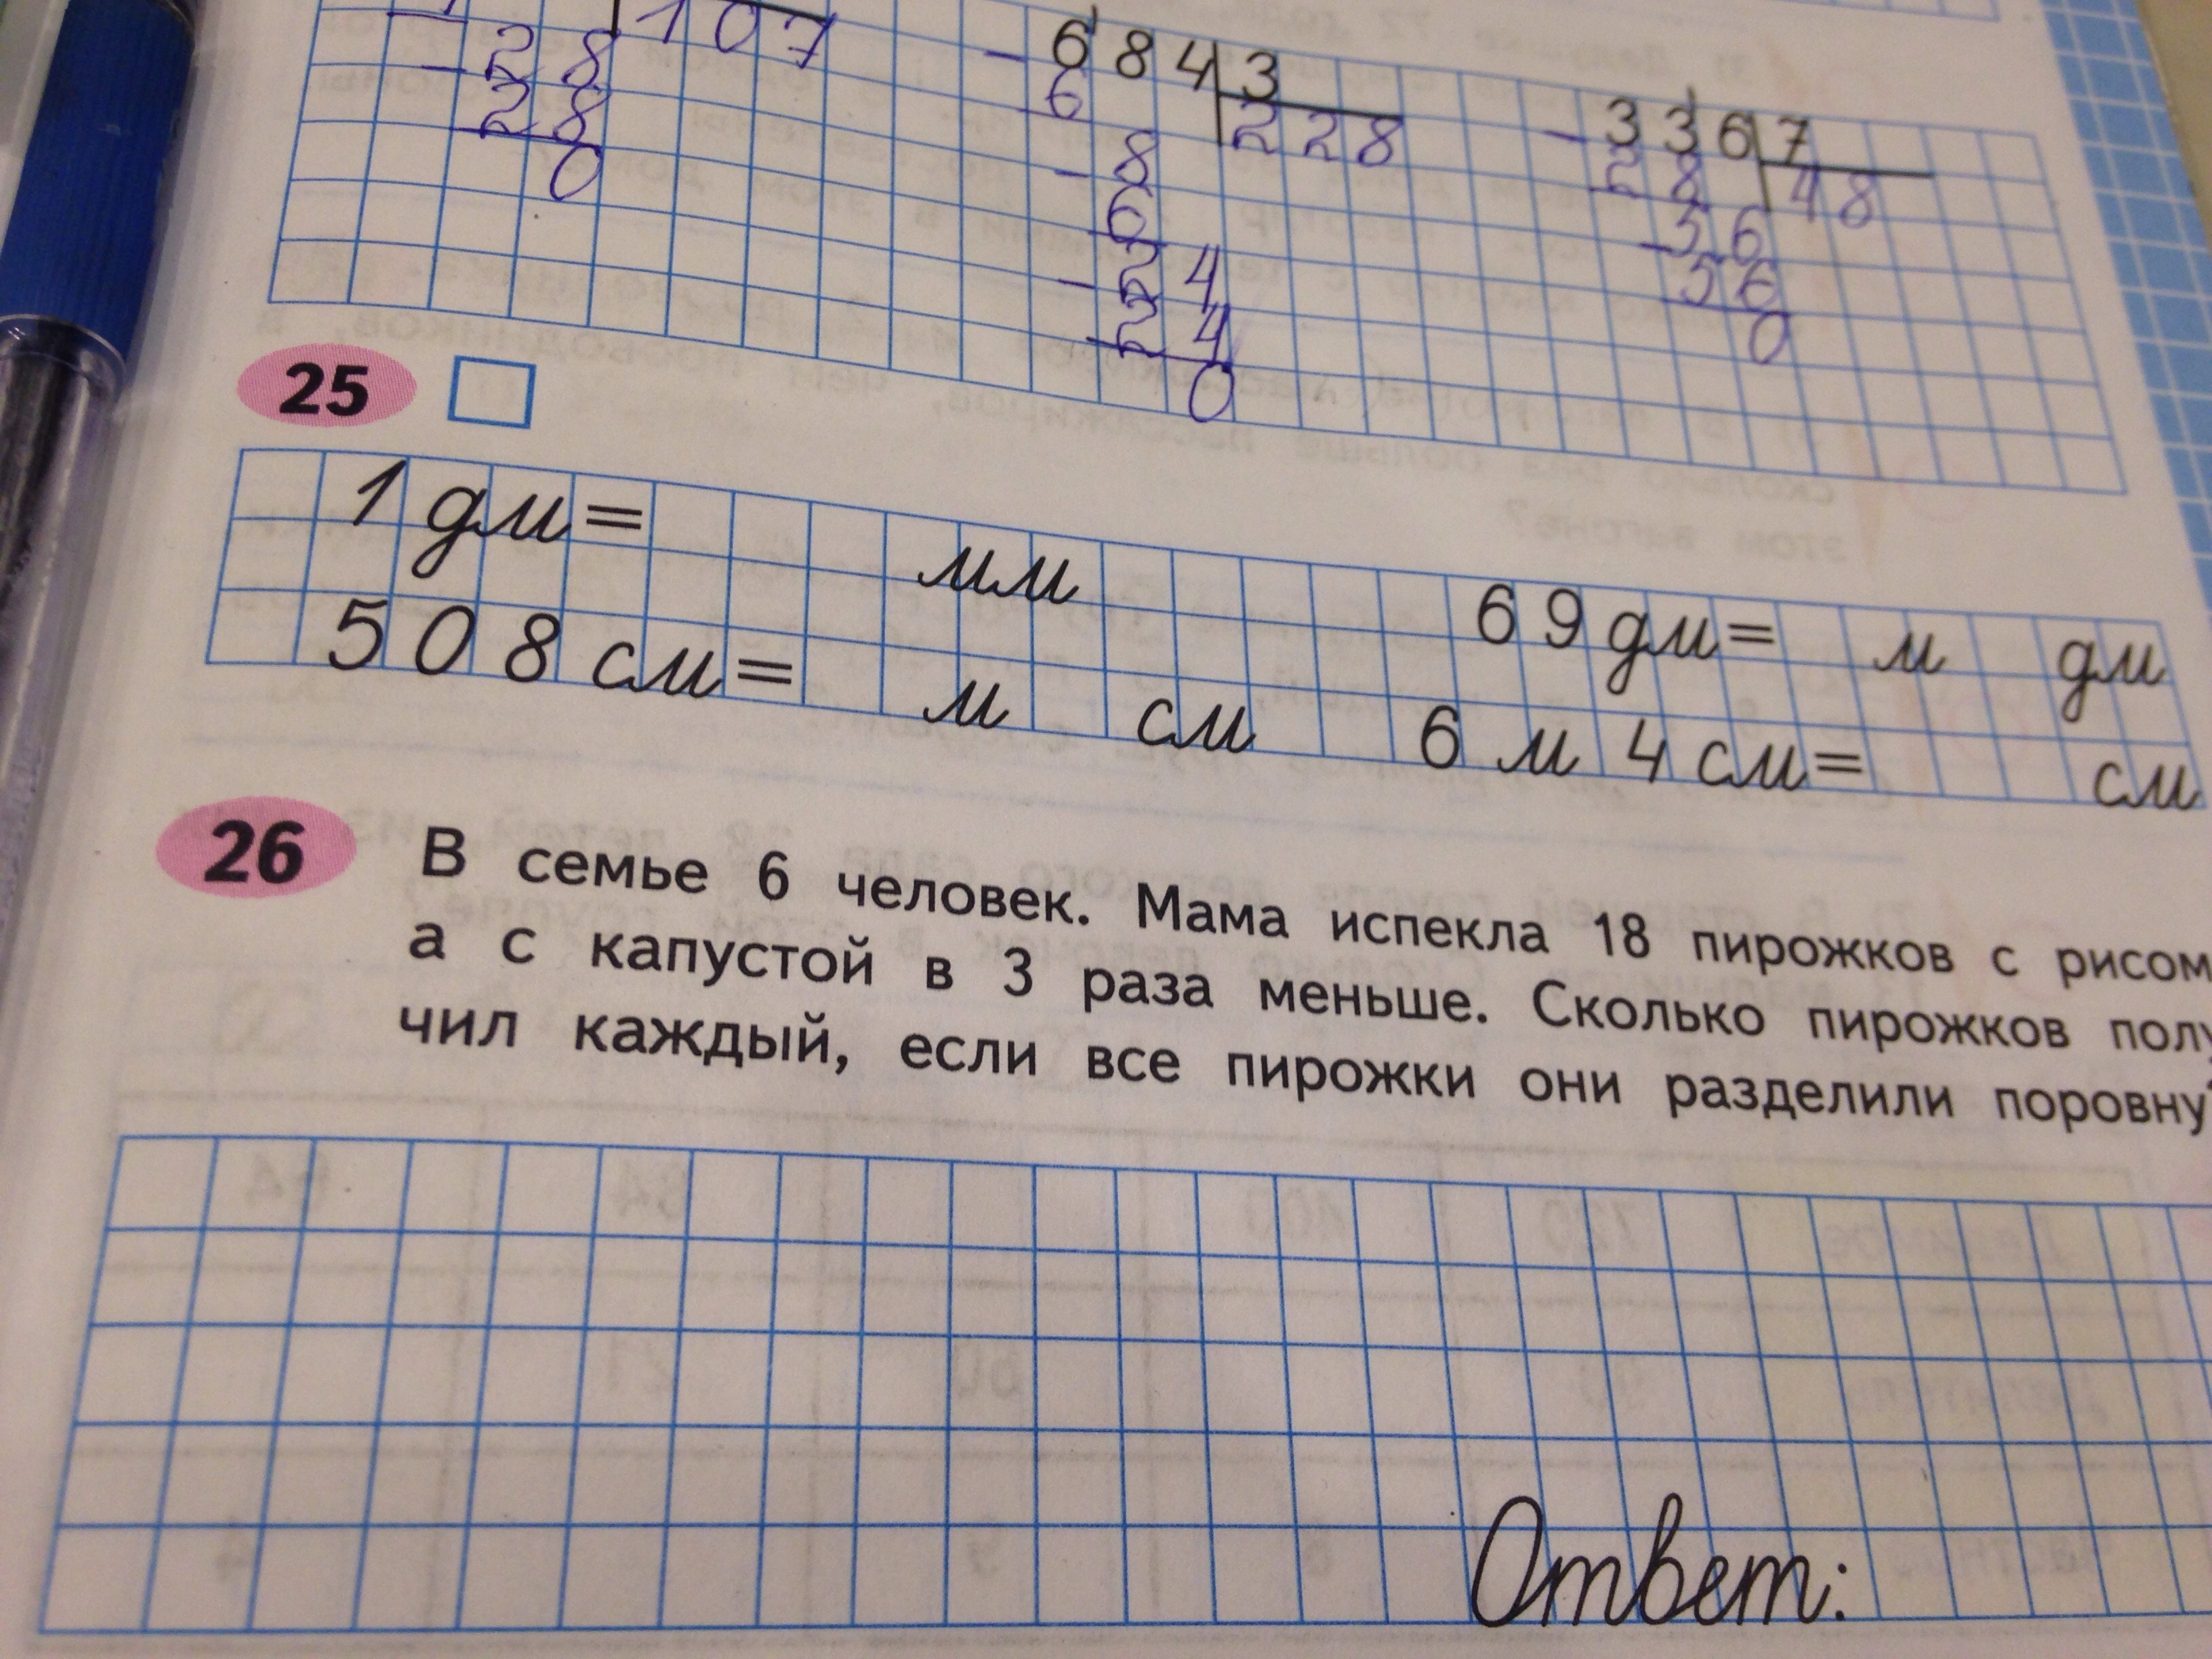 28 107
28
0
684 3
6 228
8
6
24
24
0
336 7
28 48
56
56
0
25
1 дм= мм 69 дм= м дм
508 см= м см 6 м 4 см= см
26 В семье 6 человек. Мама испекла 18 пирожков с рисом
а с капустой в 3 раза меньше. Сколько пирожков полу
чил каждый, если все пирожки они разделили поровну
Ответ: